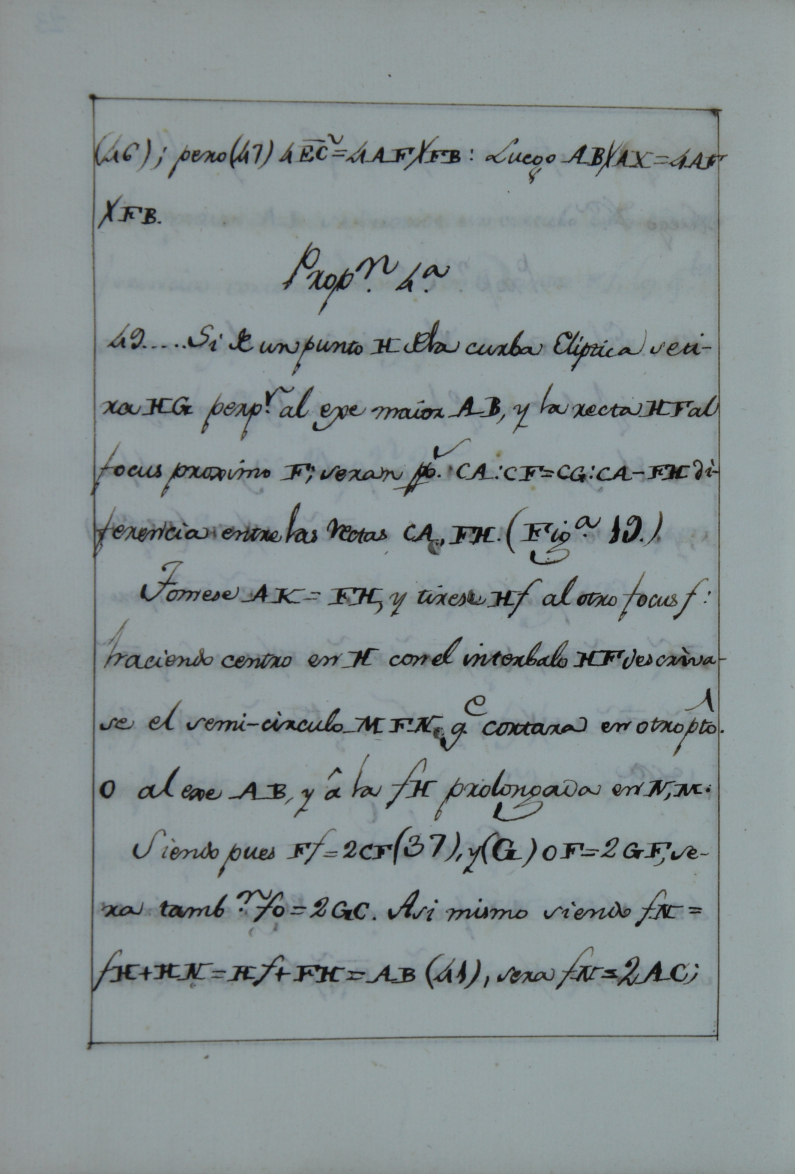 (46); pero (47) 4EC²=4AF×FB: Luego AB×AX=4AF
×FB.
Propⁿ. 4ª.
49.....Si de un punto H dela curba Eliptica se ti-
ra HG perpʳ. al exe maior AB, y la recta HF al
focus proximo F; seran CA:CF=CG:CA-FH di-
ferencia entre las rectas CA, FH. (Figª. 19.)
Tomese AK=FH, y tirese Hf al otro focus f:
haciendo centro en H con el interbalo HF descriva-
se el semi-circulo MFN, qᵉ cortara en otro pto.
O al exe AB, y â la fH prolongada en N, M.
Siendo pues Ff=2CF(37), y(G) OF=2GF, se-
ra tambⁿ. fO=2GC. Asi mismo siendo fN=
fH+HN=Hf+FH=AB (41), sera fN=2AC;